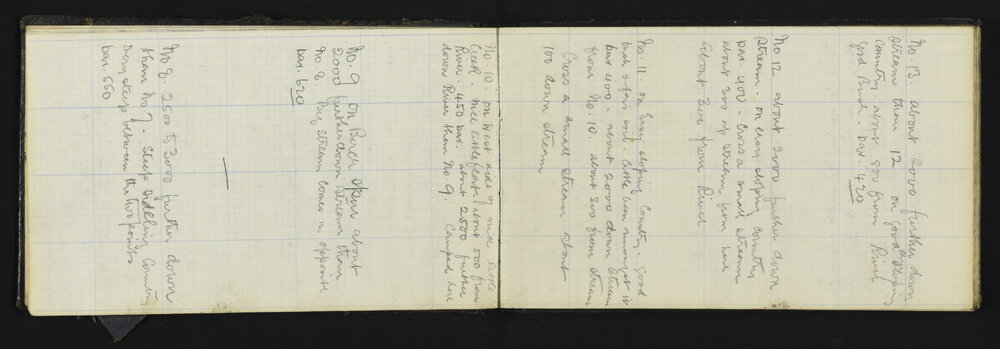 No. 13. about 2000 further down
stream than 12 on good sloping
Country about from River
good Bush. bar. 420
No 12 about 2000 further down
stream. on easy sloping country
bar. 400 - Cross a small stream
about 300 up stream from here
about 300 from River
No. 11. on easy sloping Country. good
bush & fair soil. little amongst it
bar 400. about 2000 down stream
from No. 10. about 200 from stream
Cross a small stream about
100 down stream
No. 10. on West side of nice little
Creek nice little flat. about 500 from
River. 450 bar. about 2500 further
down River than No 9. Camped here
No. 9 on Birch Spur about
2000 further down stream than
No. 8. Big stream comes in opposite
bar. 620
No 8. 2500 to 3000 further down
than No 7. Steep sideling Country
very steep between the two points
bar 550